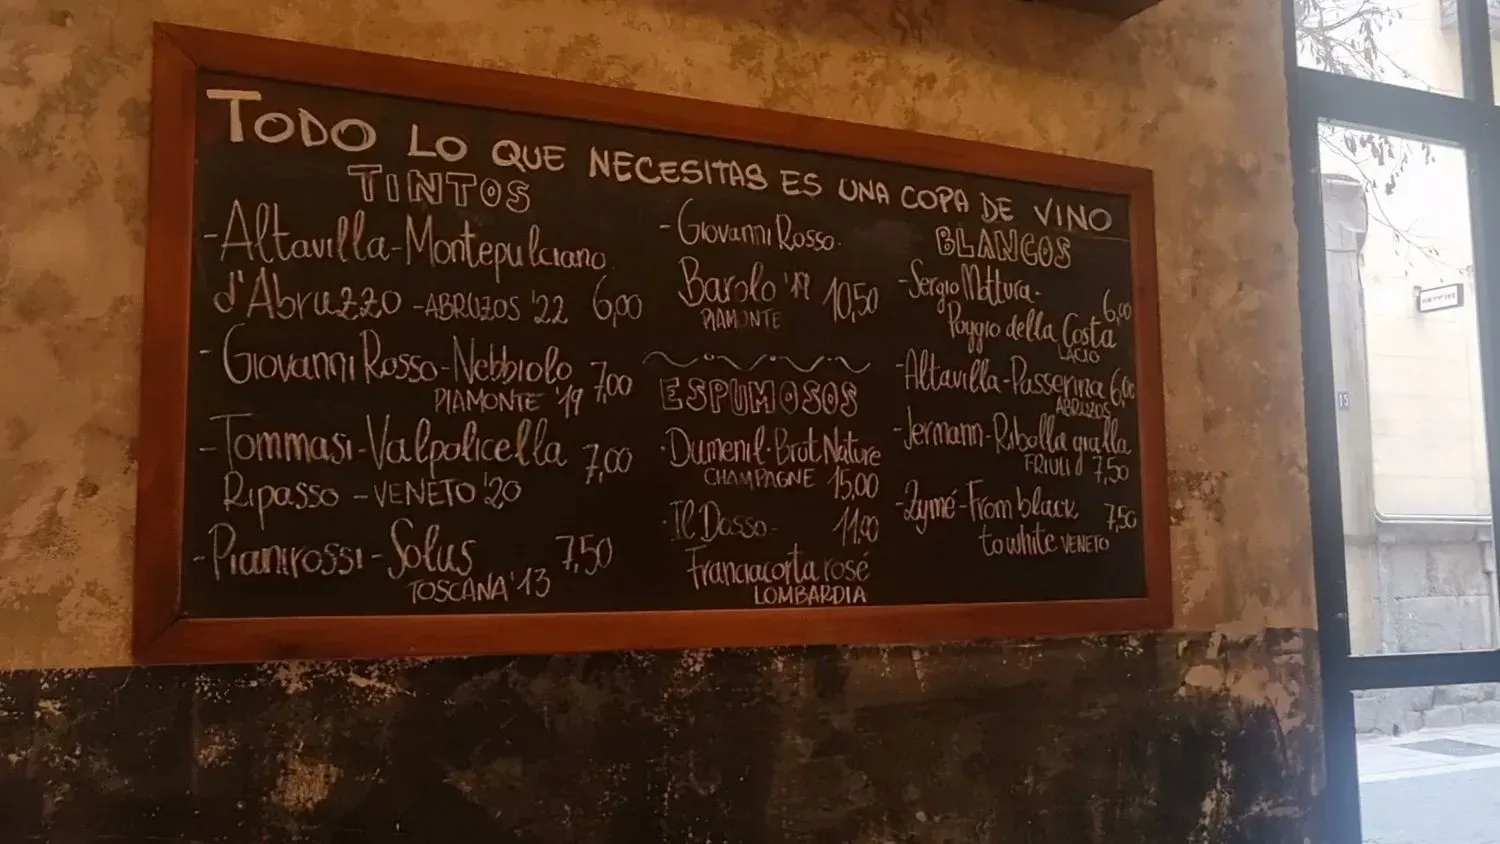 TODO LO QUE NECESITAS ES UNA COPA DE VINO
TINTOS
- Altavilla - Montepulciano
d'Abruzzo - ABRUZOS '22 6,00
- Giovanni Rosso - Nebbiolo 7,00
PIAMONTE '19
- Tommasi - Valpolicella 7,00
Ripasso - VENETO '20
- Pianirossi - Solus 7,50
TOSCANA '13
- Giovanni Rosso.
Barolo '19 10,50
PIAMONTE
ESPUMOSOS
· Dumenil · Brut Nature
CHAMPAGNE 15,00
· Il Dosso - 11,00
Franciacorta rosé
LOMBARDIA
BLANCOS
- Sergio Mottura - 6,00
Poggio della Costa
LACIO
- Altavilla - Passerina 6,00
ABRUZOS
- Jermann - Ribolla gialla
FRIULI 7,50
- Zymé - From black 7,50
to white VENETO
15